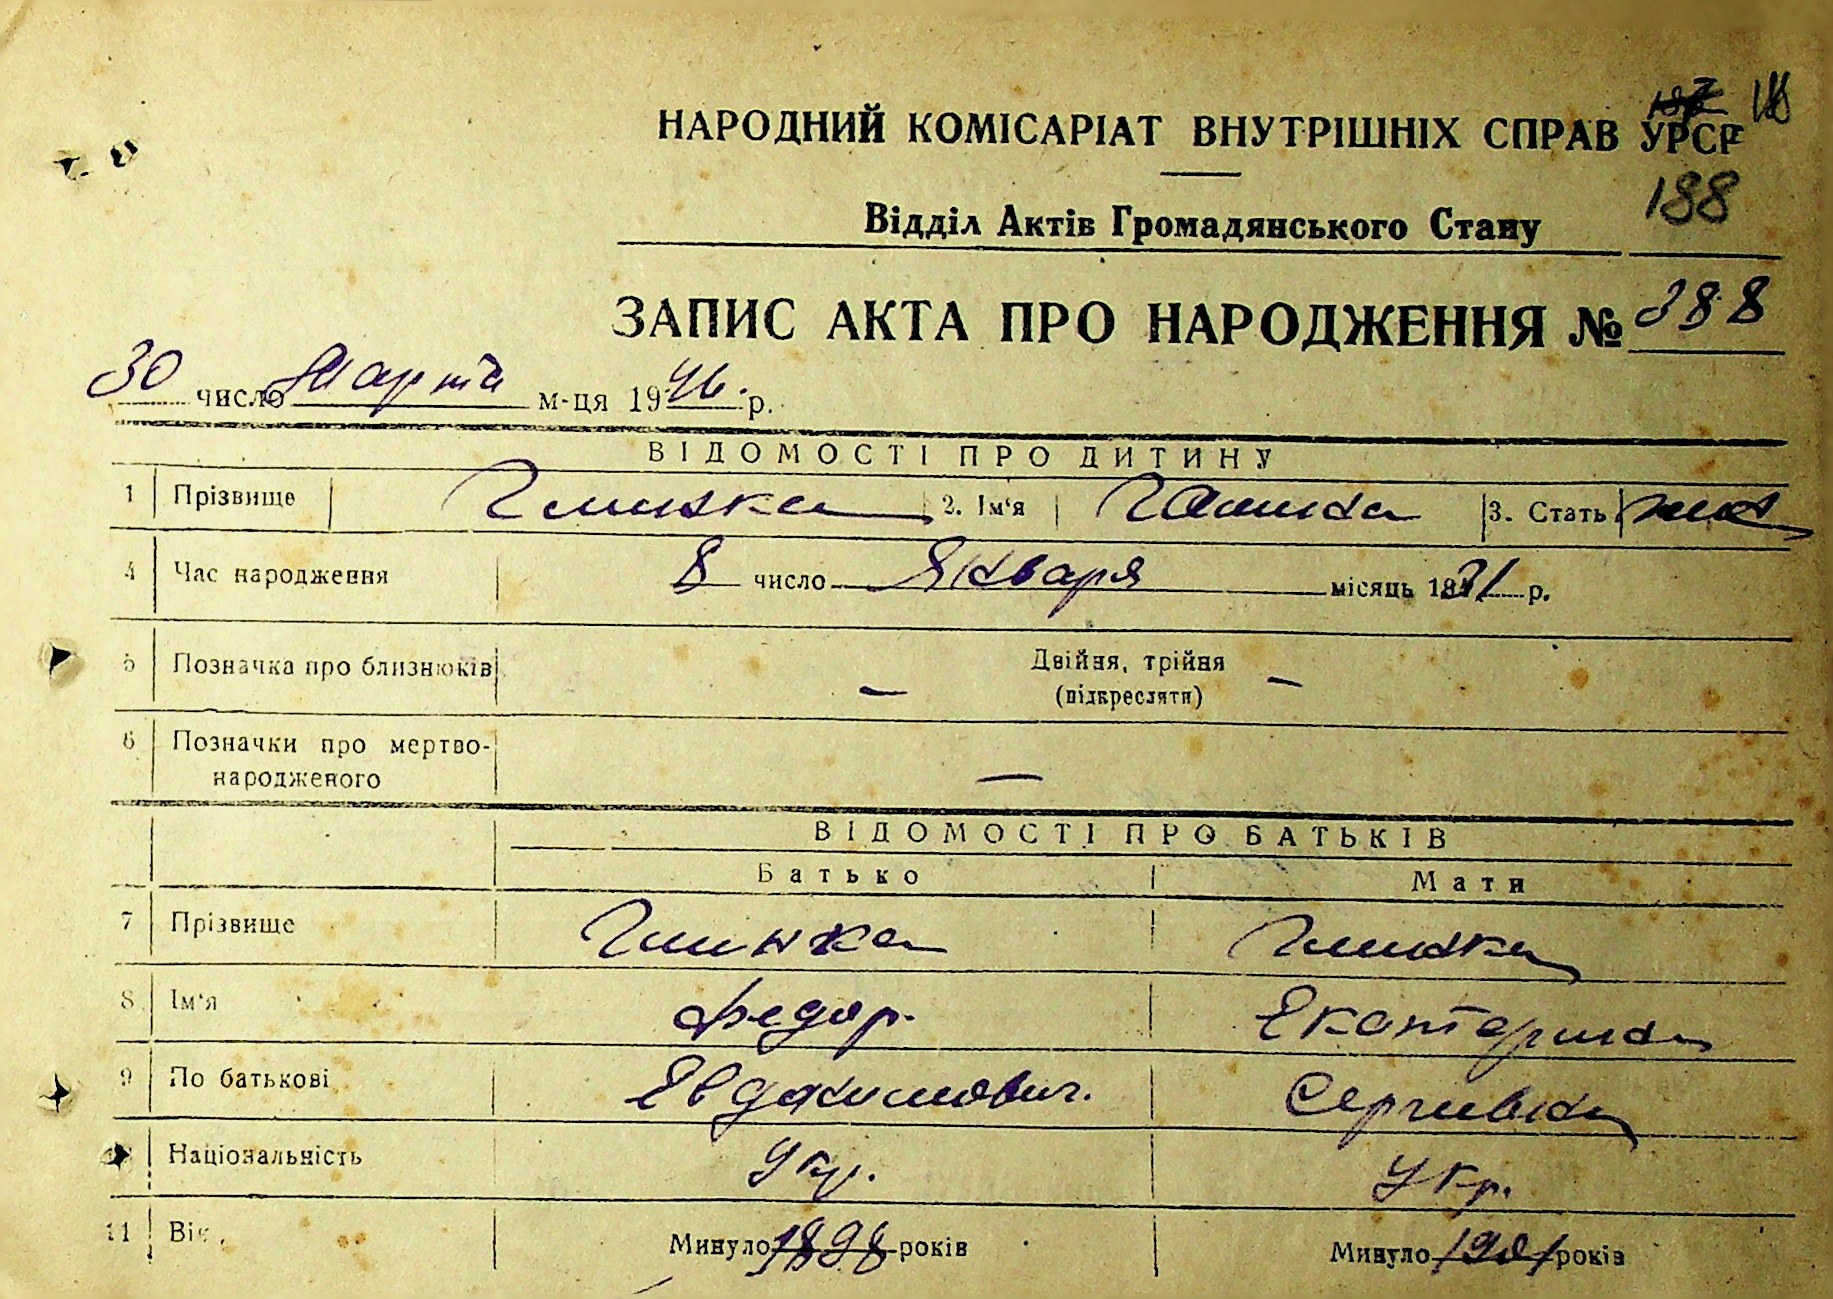 НАРОДНИЙ КОМІСАРІАТ ВНУТРІШНІХ СПРАВ УРСР
188
Відділ Актів Громадянського Стану
ЗАПИС АКТА ПРО НАРОДЖЕННЯ № 388
30 число Марта м-ця 1946. р.
ВІДОМОСТІ ПРО ДИТИНУ
1 Прізвище Глинка 2. Ім'я Галина 3. Стать жен
4 Час народження 8 число Января місяць 1931 р.
5 Позначка про близнюків — Двійня, трійня —
(підкресляти)
6 Позначки про мертво-
народженого —
ВІДОМОСТІ ПРО БАТЬКІВ
Батько Мати
7 Прізвище Глинка Глинка
8 Ім'я Федор. Екатерина
9 По батькові Евдокимович. Сергиевна
Національність Укр. Укр.
11 Вік Минуло 1898 років Минуло 1901 років